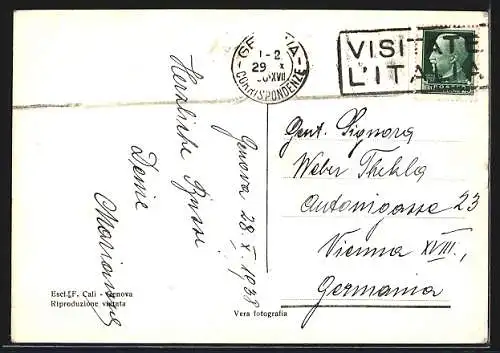 GENOVA
1-2
29 X
XVII
CORRISPONDENZE
VISITATE
L'ITALIA
Herzliche Küsse
Deine
Marianne
Genova 28. X. 1938
Gent. Signora
Weber Thekla
Antonigasse 23
Vienna XVIII.,
Germania
Escl. F. Cali - Genova
Riproduzione vietata
Vera fotografia